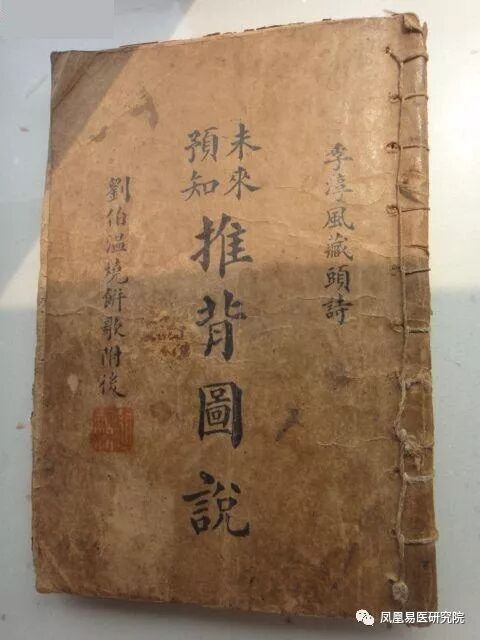 李淳風藏頭詩
未來
預知
推背圖說
劉伯溫燒餅歌附後
凤凰易医研究院